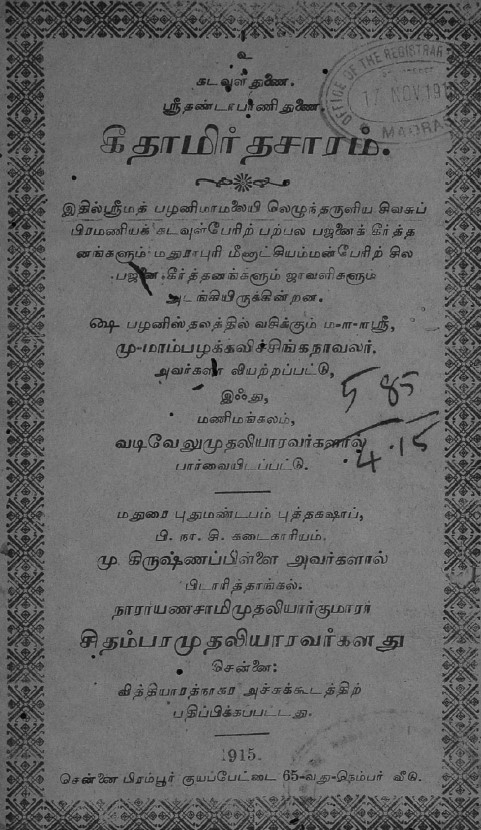 உ
கடவுள் துணை.
ஸ்ரீதண்டபாணி துணை.
OFFICE OF THE REGISTRAR
17 NOV. 191
MADRA
கீதாமிர்தசாரம்.
இதில் ஸ்ரீமத் பழனிமாமலையி லெழுந்தருளிய சிவசுப்
பிரமணியக் கடவுள்பேரிற் பற்பல பஜனைக் கீர்த்த
னங்களும் மதுராபுரி மீனாட்சியம்மன்பேரிற் சில
பஜனை கீர்த்தனங்களும் ஜாவளிகளும்
அடங்கியிருக்கின்றன.
ஷை பழனிஸ்தலத்தில் வசிக்கும் ம-ா-ா-ஸ்ரீ,
மு-மாம்பழக்கவிச்சிங்கநாவலர்.
அவர்களா லியற்றப்பட்டு,
இஃது,
மணிமங்கலம்,
வடிவேலுமுதலியாரவர்களால்
பார்வையிடப்பட்டு.
5 85
4.15
மதுரை புதுமண்டபம் புத்தகஷாப்,
பி. நா. சி. கடைகாரியம்.
மு. கிருஷ்ணப்பிள்ளை அவர்களால்
பிடாரித்தாங்கல்.
நாராயணசாமிமுதலியார்குமாரர்
சிதம்பரமுதலியாரவர்களது
சென்னை:
வித்தியாரத்நாகர அச்சுக்கூடத்திற்
பதிப்பிக்கப்பட்டது.
1915.
சென்னை பிரம்பூர் குயப்பேட்டை 65-வது-நெம்பர் வீடு.